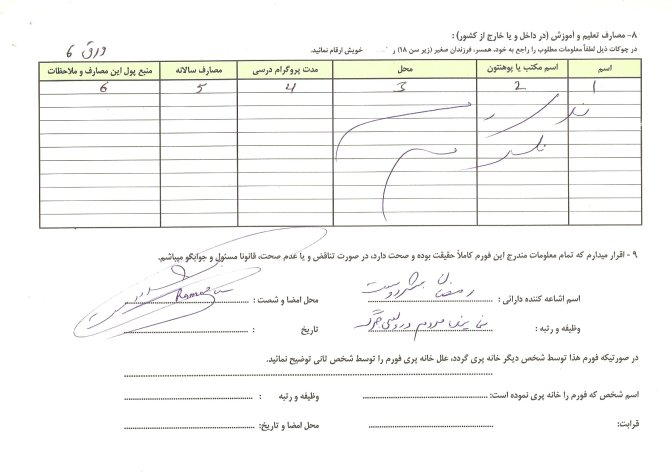 ورق 6
۸- مصارف تعلیم و آموزش (در داخل و یا خارج از کشور) :
در چوکات ذیل لطفاً معلومات مطلوب را راجع به خود، همسر، فرزندان صغیر (زیر سن ۱۸) ر خویش ارقام نمائید.
اسم اسم مکتب یا پوهنتون محل مدت پروگرام درسی مصارف سالانه منبع پول این مصارف و ملاحظات
1 2 3 4 5 6
ندارد
۹ - اقرار میدارم که تمام معلومات مندرج این فورم کاملاً حقیقت بوده و صحت دارد، در صورت تناقض و یا عدم صحت، قانونا مسئول و جوابگو میباشم.
اسم اشاعه کننده دارائی : رمضان بشردوست محل امضا و شصت : Ramazan
وظیفه و رتبه : مردم در ولسی جرگه تاریخ :
در صورتیکه فورم هذا توسط شخص دیگر خانه پری گردد، علل خانه پری فورم را توسط شخص ثانی توضیح نمائید.
اسم شخص که فورم را خانه پری نموده است: وظیفه و رتبه :
قرابت: محل امضا و تاریخ :